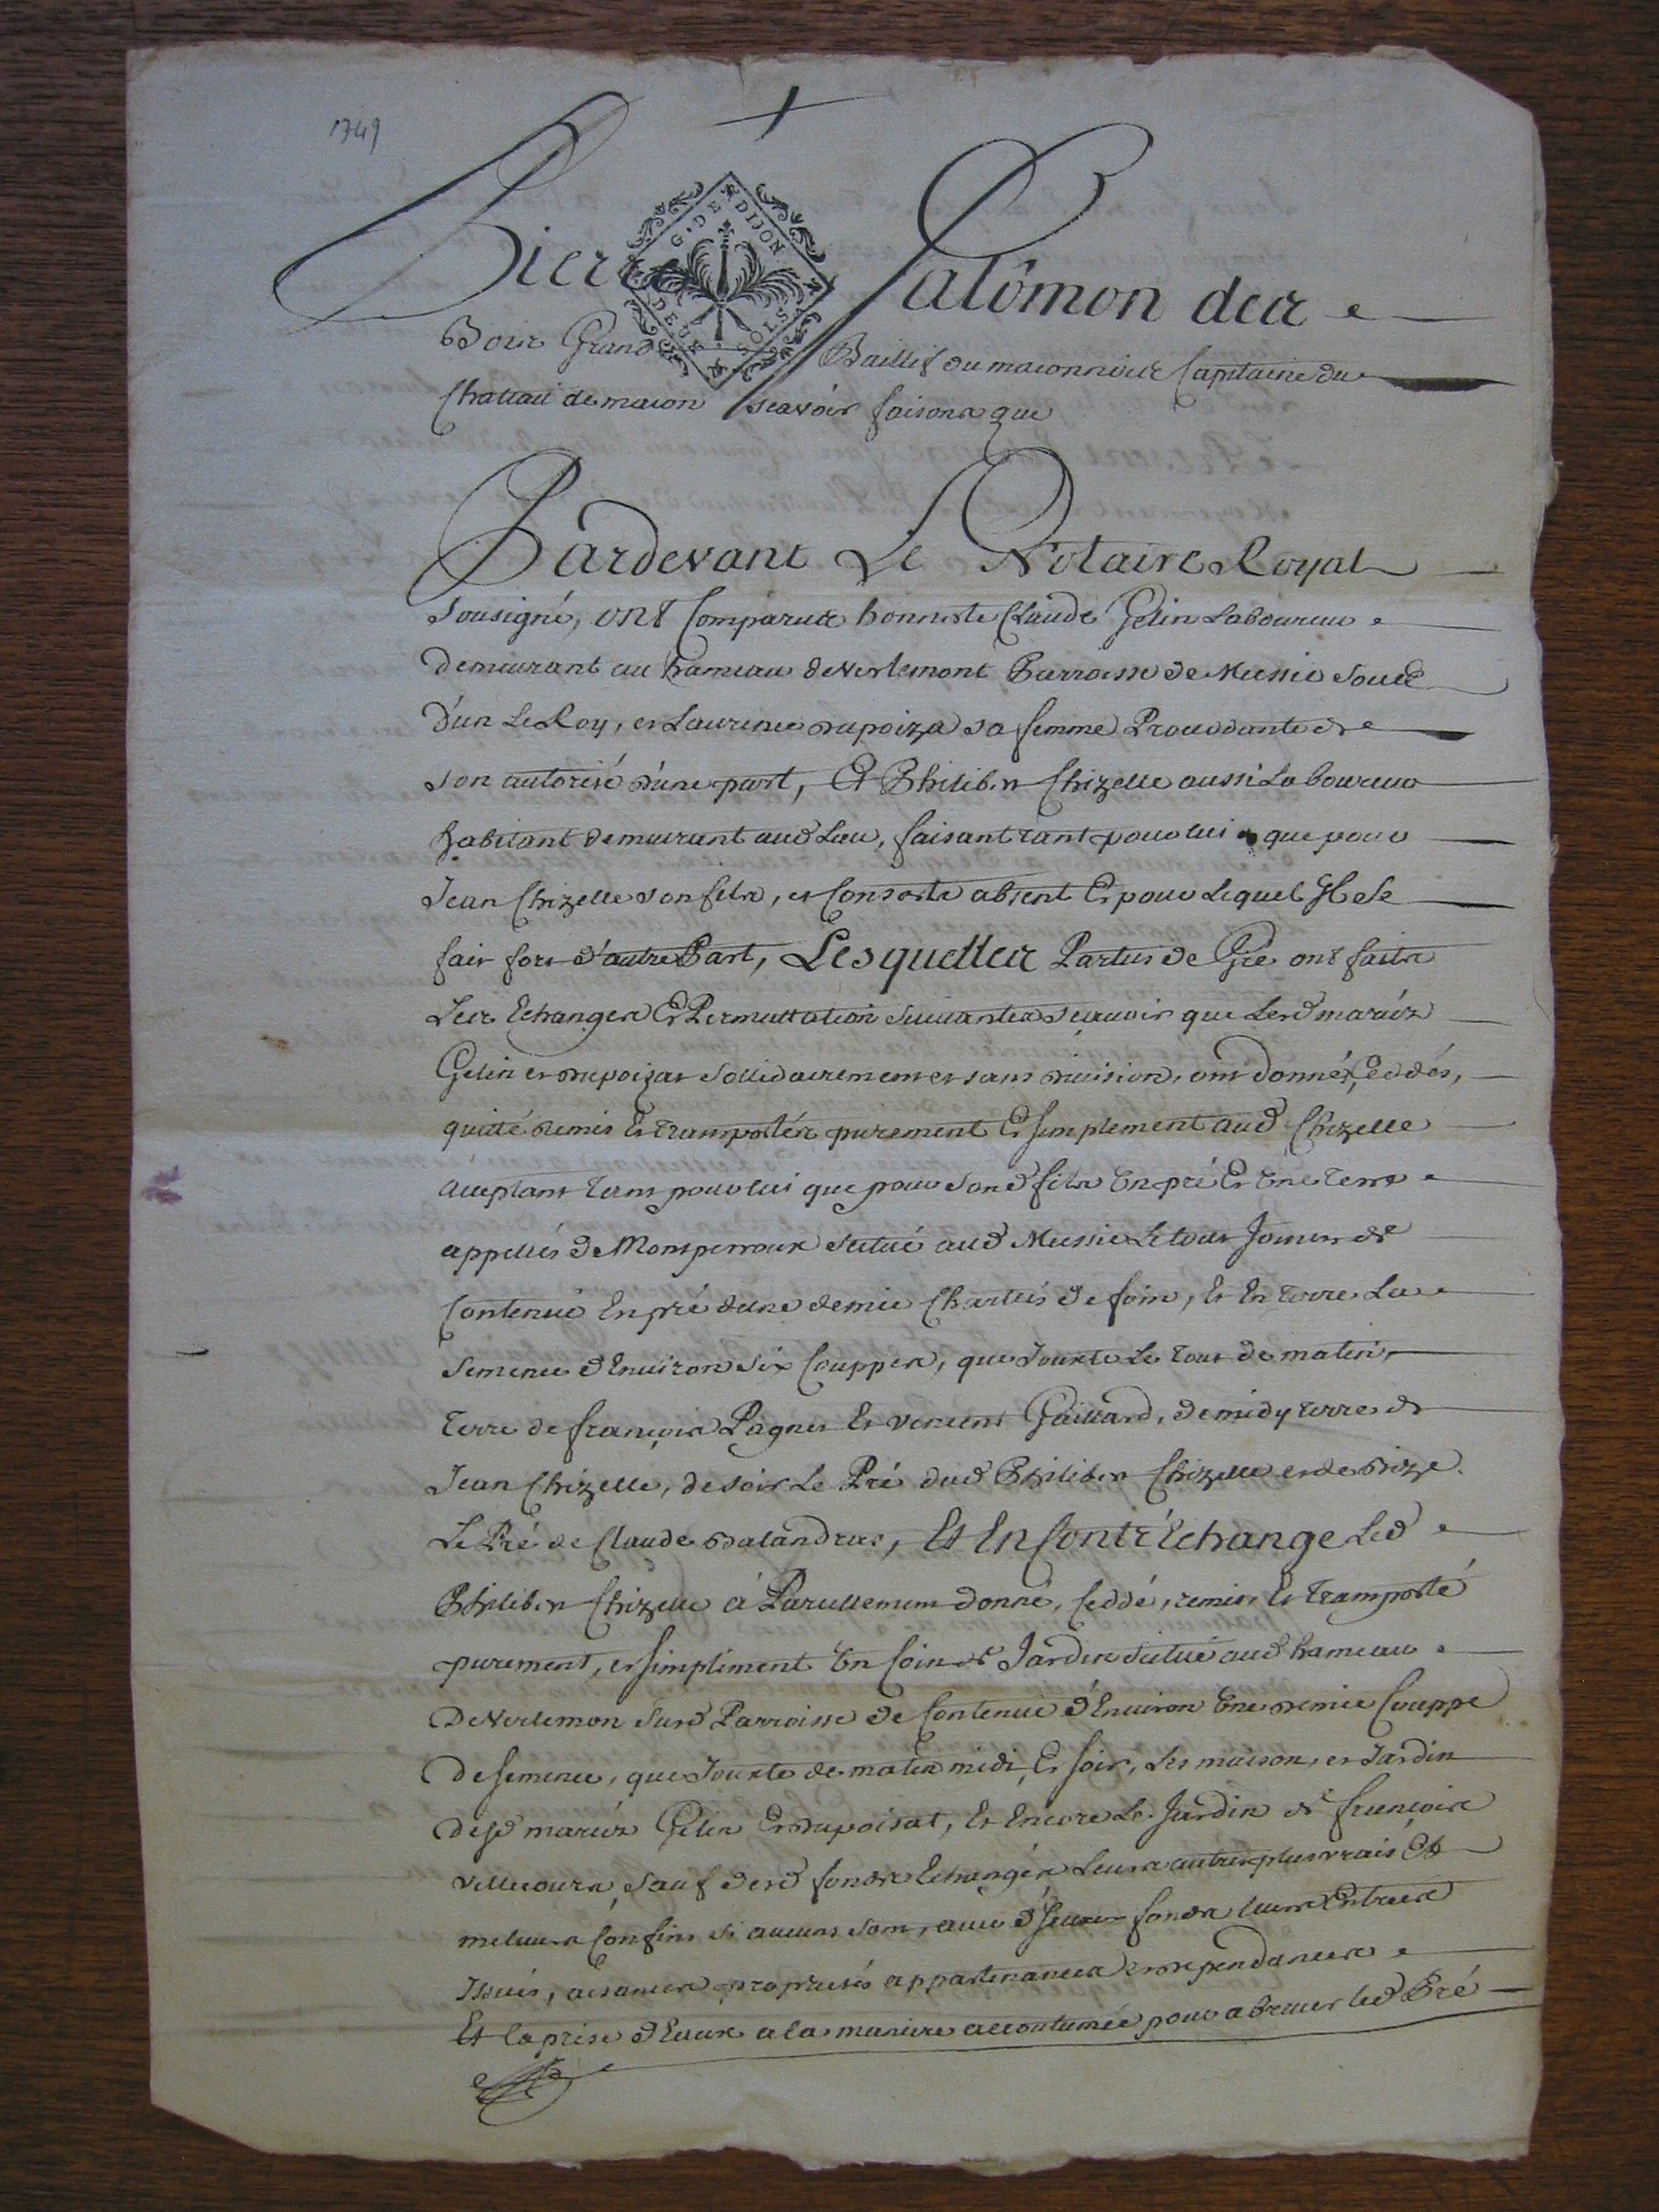 1749
Pierre Palômon des
G. DE DIJON
DEUX SOLS
Bois Grand Baillif du maconnois Capitaine du
Chattau de macon scavoir faisons que
Pardevant Le Notaire Royal
Sousigné, ont Comparus honneste Claude Gelin Laboureur
demeurant au hameau de Verlemont Parroisse de Mussie
D'un Le Roy, et Laurence Dupoiza sa femme Procedante de
son autorisé d'une part, Et Philibert Chizelle aussi Laboureur
habitant demeurant aud Lieu, faisant tant pour lui que pour
Jean Chizelle son fils, et Consorts absent Et pour Lequel Il se
fait fort d'autre Part, Lesquelles Parties de Gré ont faits
Les Echanges Et Permuttation suivantes scavoir que Lesd mariés
Gelin et Dupoizat sollidairement et sans division, ont donnés, Ceddés,
quitté remis Et transportés purement Et simplement aud Chizelle
acceptant tant pour lui que pour sond fils Un pré Et Une Terre
appellés de Monsperroux situé aud Mussie Le tout Joinct de
Contenüe En pré d'une demie Chartés de foin, Et En Terre La
semence d'Environ six Couppes, que Jouxte Le tout de matin,
Terre de françois Pagnet Et vincent Gaillard, de midy terre de
Jean Chizelle, de soir Le Pré dud Philibert Chizelle et de Bize
Le Pré de Claude Balandras, Et En Contr'Echange Led
Philibert Chizelle à Pareillement donné, Ceddé, remis, Et Transporté
purement, et simpliment Un Coin de Jardin situé aud hameau
De Verlemon Susd Parroisse de Contenüe d'Environ Une demie Couppe
De semence, que Jouxte de matin midi, Et soir, Les maison, et Jardin
Desd mariés Gelin Et Dupoisat, Et Encore Le Jardin de françois
Villecourt, Sauf desd fonds Echangés Leurs autres plus vrais Et
meilleurs Confins si aucuns sont, avec d'Iceux fonds leurs Entrées
Issuës, aisances proprietés appartenances et dependances
Et la prise d'Eaux a la maniere accoutumée pour abreuer led Pré